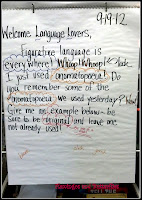 9/19/12
Welcome Language Lovers,
Figurative language is
everywhere! Whoop! Whoop! ← Look
I just used onomatopoeia! Do
you remember some of the
onomatopoeia we used yesterday? Wow!
Give me an example below - be
sure to be original and leave one
not already used!